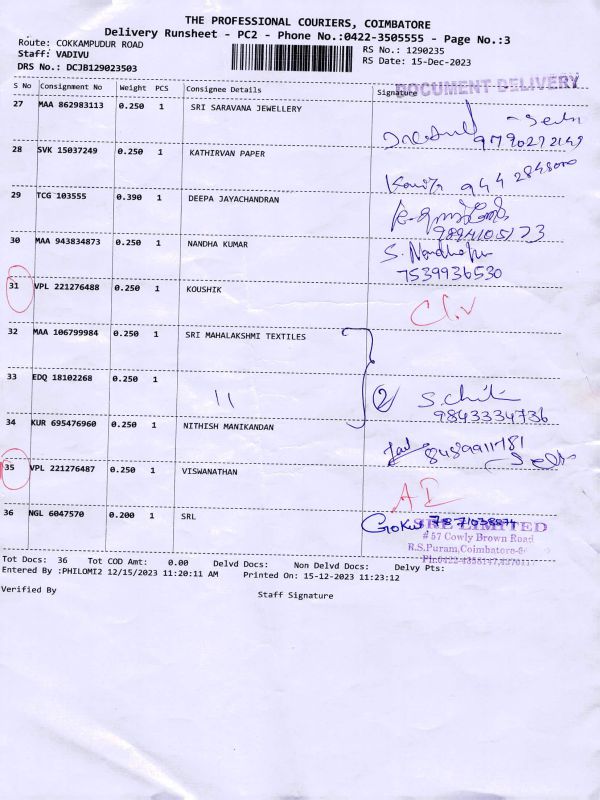 THE PROFESSIONAL COURIERS, COIMBATORE
Delivery Runsheet - PC2 - Phone No.:0422-3505555 - Page No.:3
Route: COKKAMPUDUR ROAD
RS No.: 1290235
Staff: VADIVU
RS Date: 15-Dec-2023
DRS No.: DCJB129023503
DOCUMENT DELIVERY
S No Consignment No Weight PCS Consignee Details Signature
27 MAA 862983113 0.250 1 SRI SARAVANA JEWELLERY
9790272149
28 SVK 15037249 0.250 1 KATHIRVAN PAPER
29 TCG 103555 0.390 1 DEEPA JAYACHANDRAN
9894105173
30 MAA 943834873 0.250 1 NANDHA KUMAR
7539936530
31 VPL 221276488 0.250 1 KOUSHIK
32 MAA 106799984 0.250 1 SRI MAHALAKSHMI TEXTILES
33 EDQ 18102268 0.250 1 11
2
9843334736
34 KUR 695476960 0.250 1 NITHISH MANIKANDAN
35 VPL 221276487 0.250 1 VISWANATHAN
36 NGL 6047570 0.200 1 SRL
Gokul 7871038874
SRL LIMITED
# 57 Cowly Brown Road
R.S.Puram, Coimbatore-
Tot Docs: 36 Tot COD Amt: 0.00 Delvd Docs: Non Delvd Docs: Delvy Pts:
Entered By :PHILOMI2 12/15/2023 11:20:11 AM Printed On: 15-12-2023 11:23:12
Verified By
Staff Signature